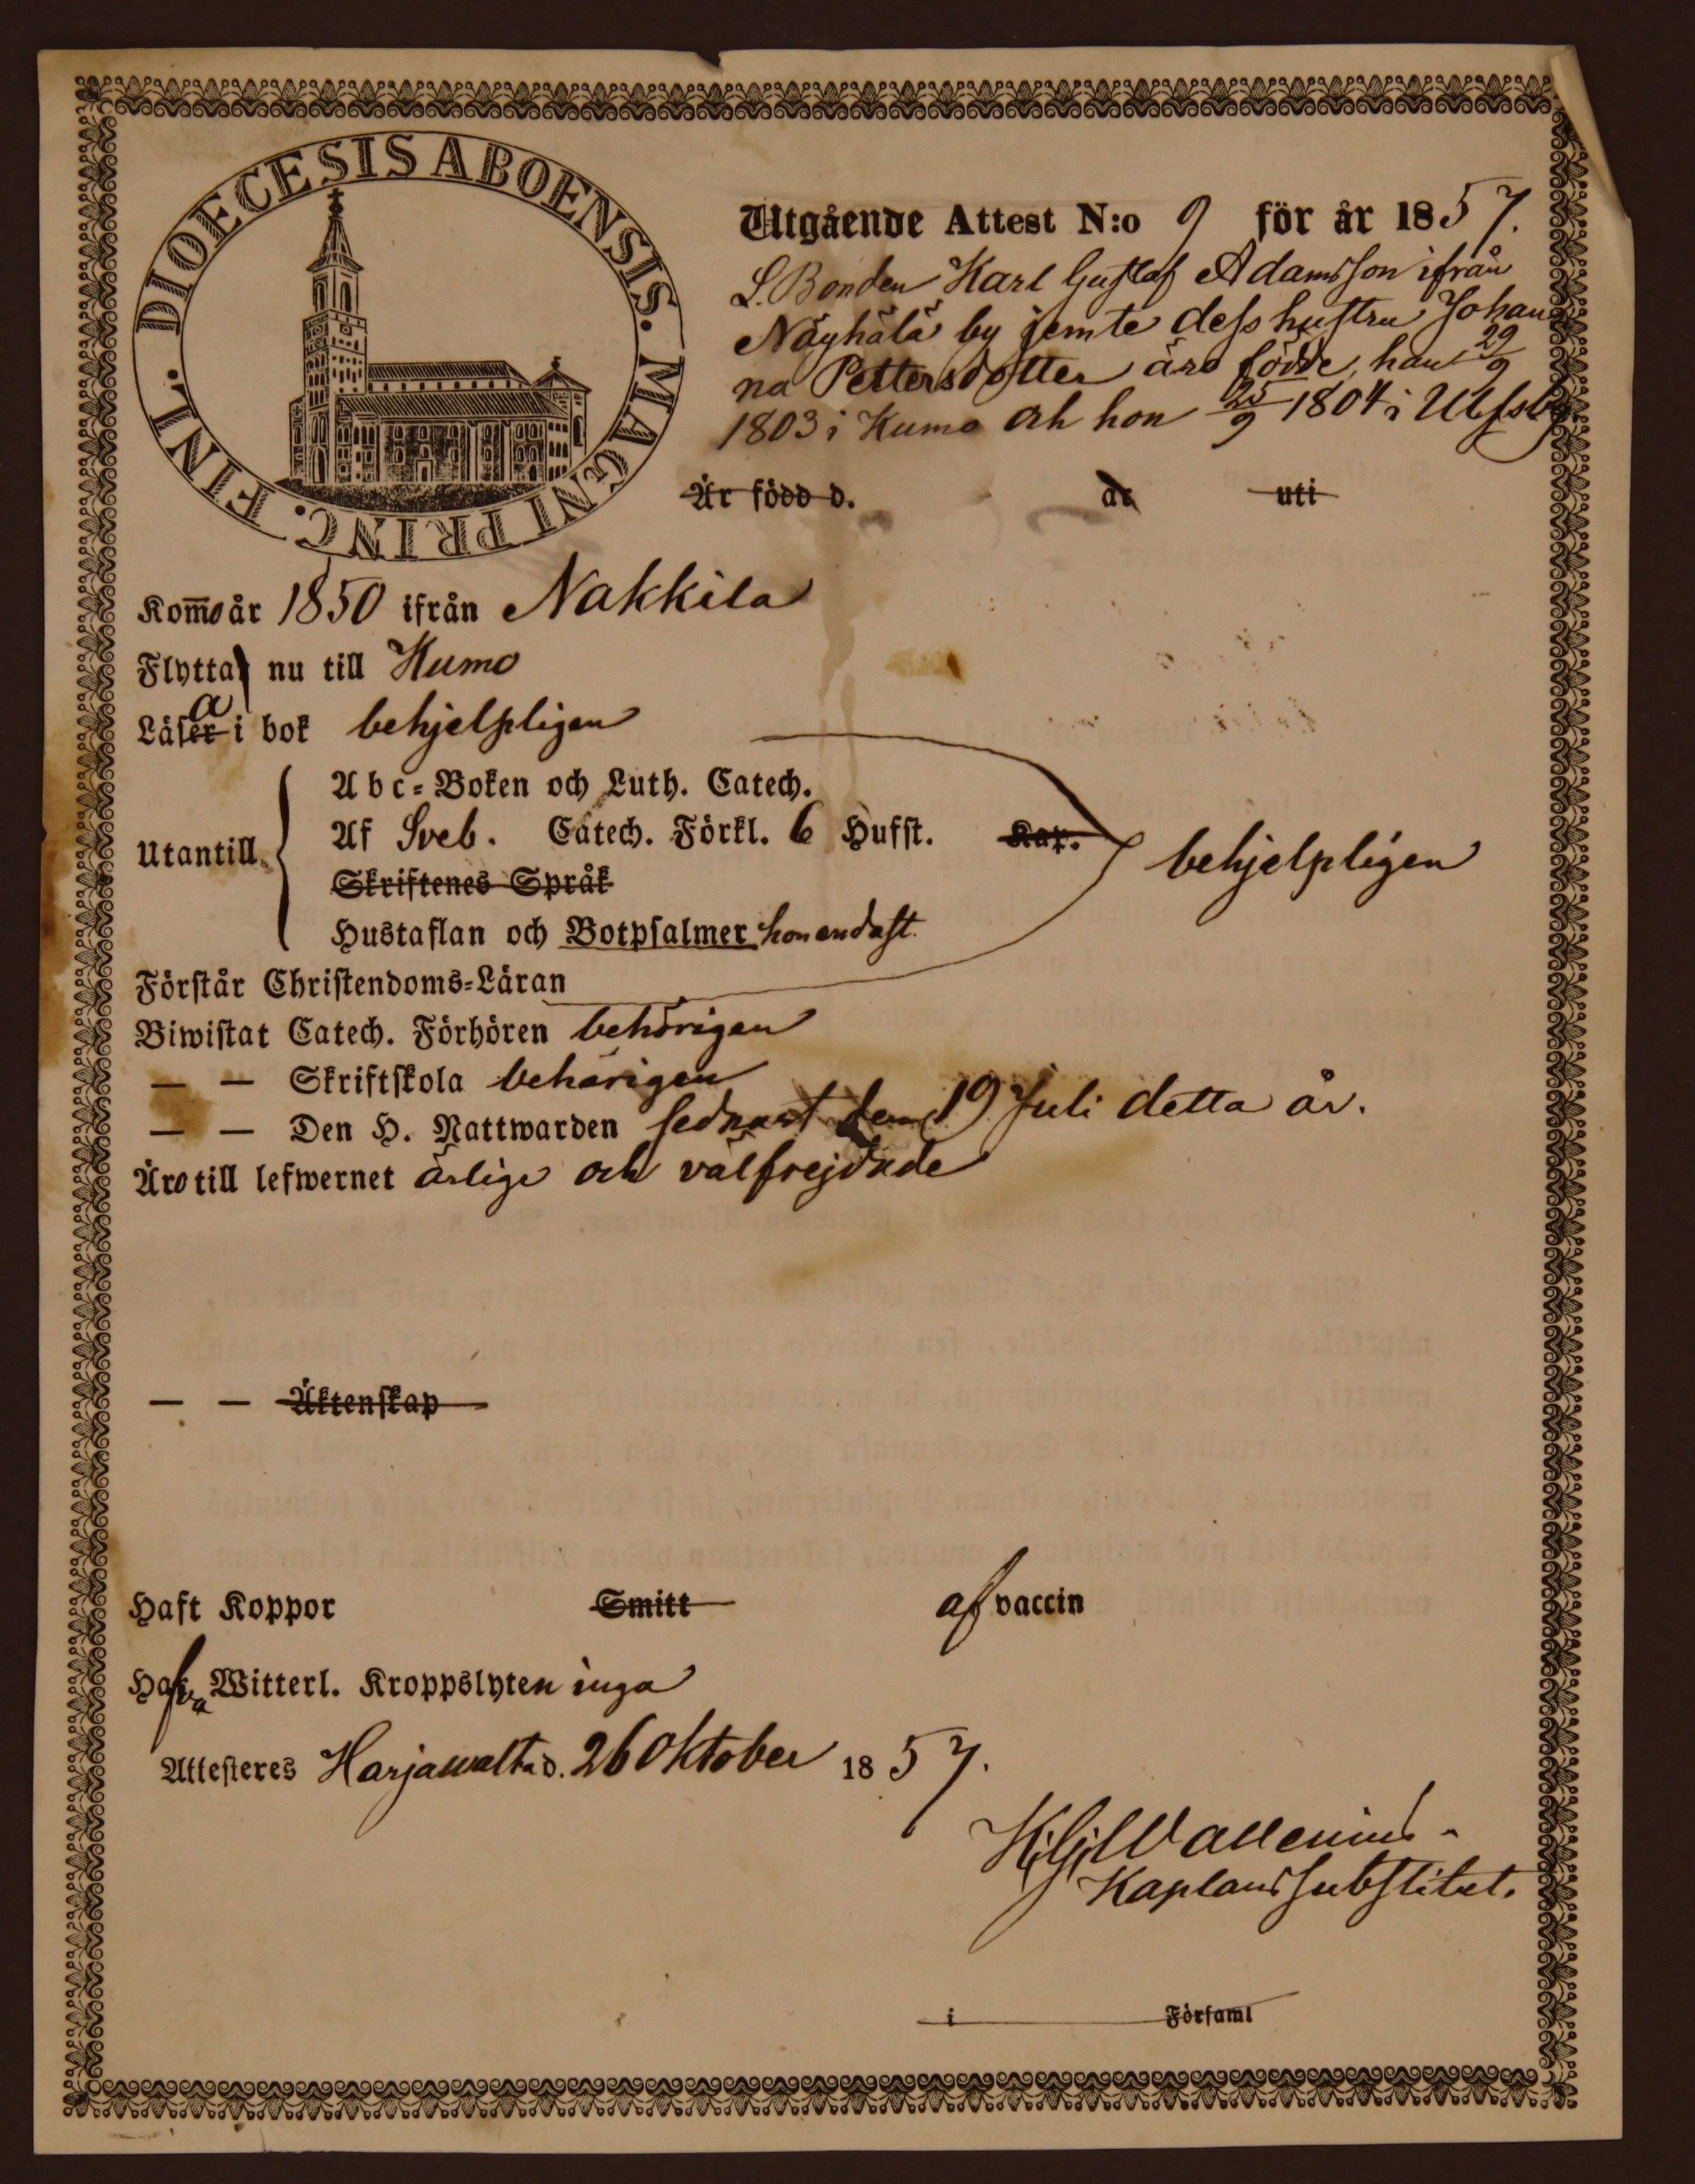 DIOECESIS ABOENSIS. MAGNI PRINC. FINL.
Utgående Attest N:o 9 för år 1857.
L. Bonden Karl Gustaf Adamsson ifrån
Näyhälä by jemte dess hustru Johan
na Pettersdotter äro födde, han 29/9
1803 i Kumo och hon 25/9 1804 i Ulfsby.
Är född d. år uti
Kommo år 1850 ifrån Nakkila
Flytta nu till Kumo
Läsa i bok behjelpligen
Abc-Boken och Luth. Catech.
Utantill Af Sveb. Catech. Förkl. 6 Hufst. Kap. behjelpligen
Skriftenes Språk
Hustaflan och Botpsalmer hon endast.
Förstår Christendoms-Läran
Biwistat Catech. Förhören behörigen
— — Skriftskola behörigen
— — Den H. Nattwarden sednast den 19 Juli detta år.
Äro till lefwernet ärlige och välfrejdade
— — Äktenskap
Haft Koppor Smitt af vaccin
Hafva Witterl. Kroppslyten inga
Attesteres Harjawalta d. 26 Oktober 1857.
K. G. Wallenius
Kaplanssubstitut.
i Församl